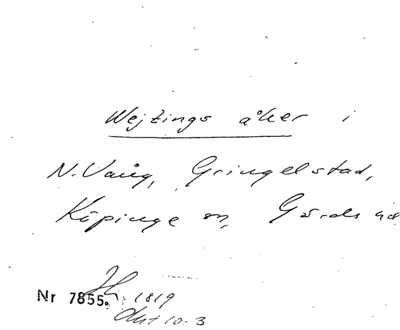 Wejzings åker i
N. Vång, Gringelstad,
Köpinge sn, Gärds hd
Nr 7855. 1819
Okt 10:3